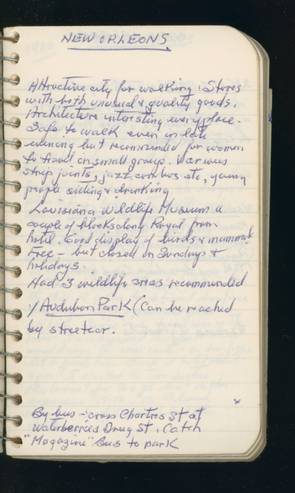 NEW ORLEONS
Attractive city for walking. Stores
with both unusual & quality goods.
Architecture interesting every place.
Safe to walk even in late
evening but recommended for women
to travel in small groups. Various
strip joints, jazz combos etc, young
people sitting & drinking
Louisiana Wildlife Museum a
couple of blocks along Royal from
hotel. Good display of birds & mammals
Free - but closed on Sundays &
holidays.
Had 3 wildlife areas recommended
1/ Audubon Park (Can be reached
by streetcar.
By bus - cross Chartres St at
Waterberries Drug St. Catch
"Magazine" Bus to park